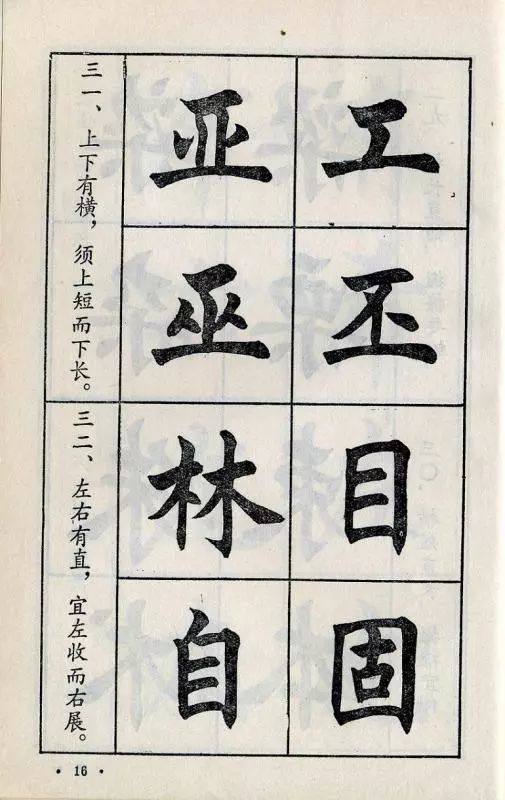 工丕目固
亚巫林自
三一、上下有横，须上短而下长。
三二、左右有直，宜左收而右展。
· 16 ·